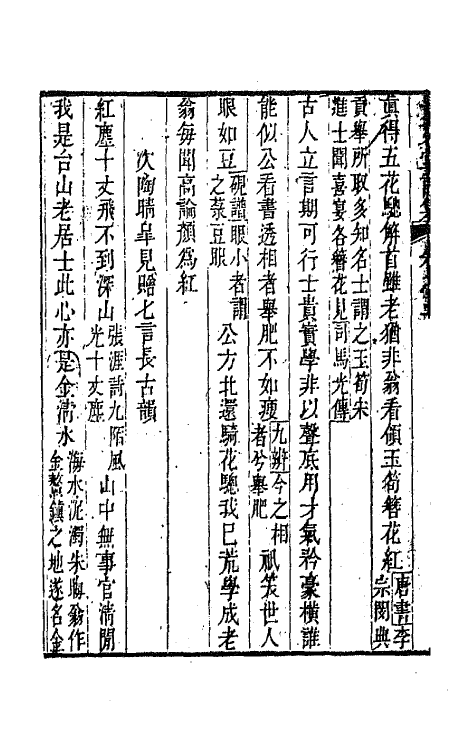 真得五花驄解首雖老猶非翁看領玉筍簪花紅唐書李宗閔典
貢舉所取多知名士謂之玉筍宋
進士聞喜宴各簪花見司馬光傳
古人立言期可行士貴實學非以聲底用才氣矜豪橫誰
能似公看書透相者舉肥不如瘦九辨今之相者兮舉肥祇笑世人
眼如豆硯譜眼小者謂之菉豆眼公方北還騎花驄我已荒學成老
翁每聞高論顏為紅
次陶晴皐見贈七言長古韻
紅塵十丈飛不到深山張涯詩九陌風光十丈塵山中無事官清閒
我是台山老居士此心亦是金濤水海水泥濁朱晦翁作金鰲鎮之地遂名金